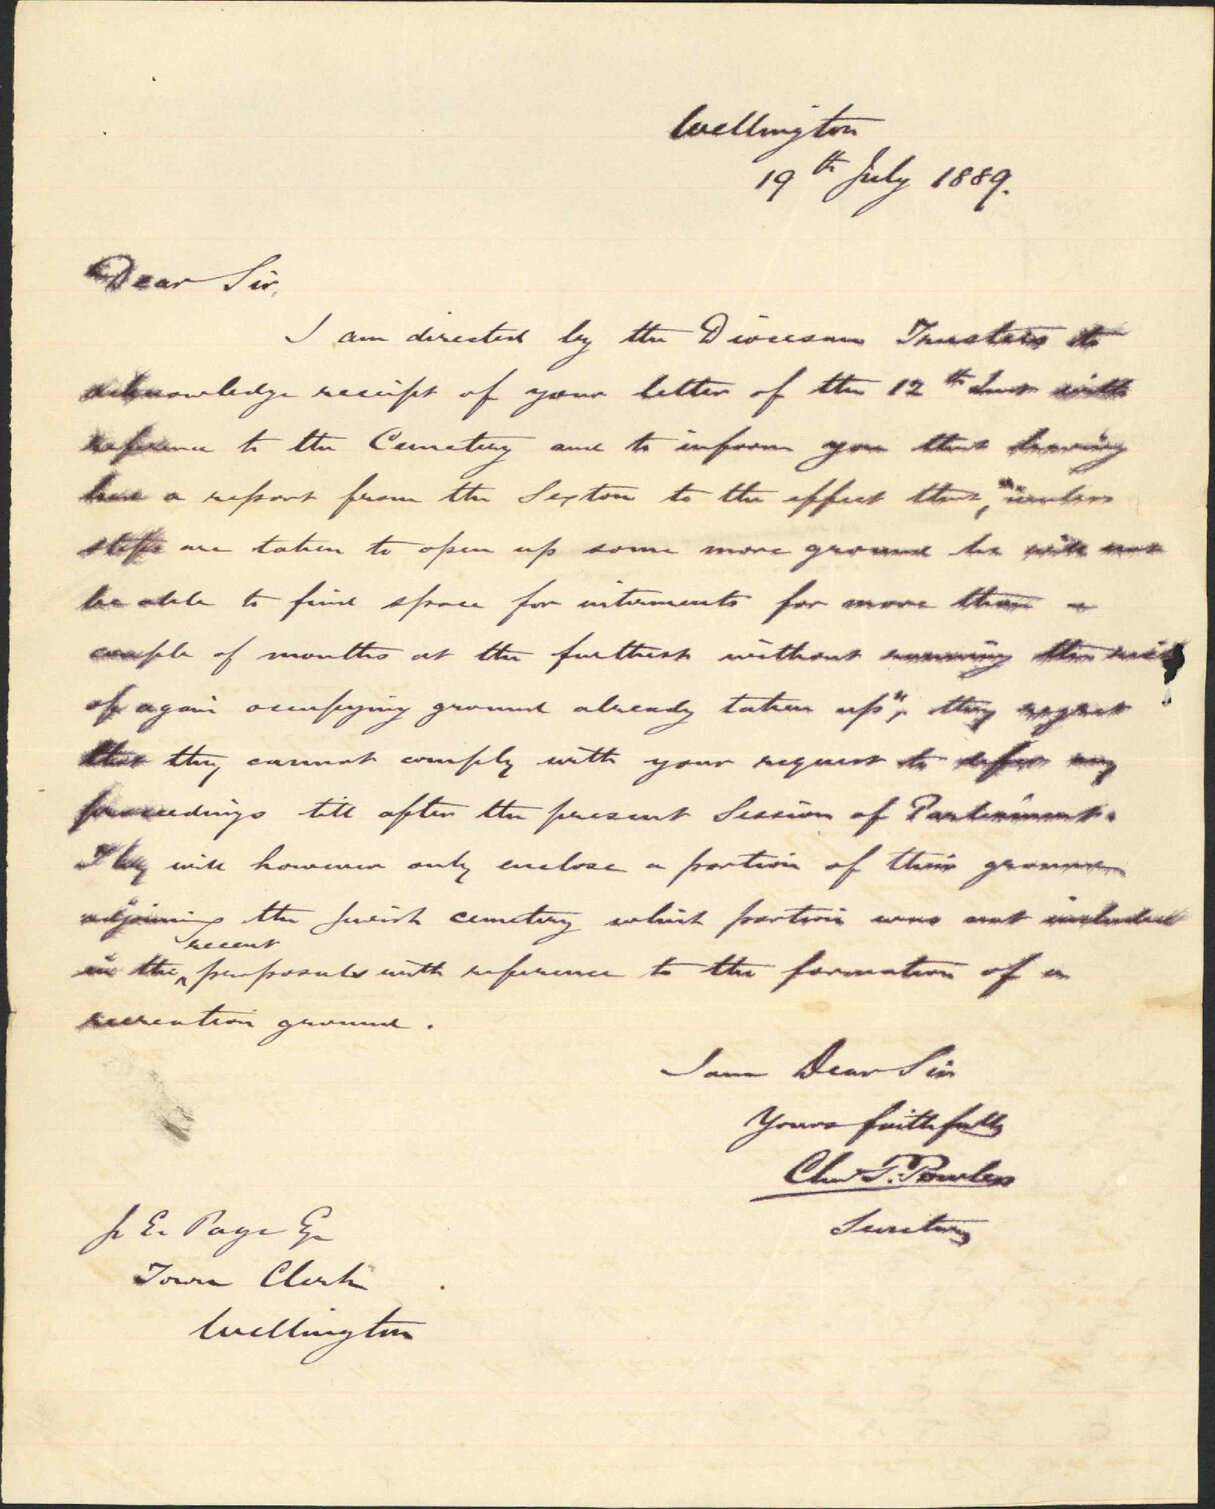 Wellington
19th July 1889.
Dear Sir,
I am directed by the Diocesan Trustees to
acknowledge receipt of your letter of the 12th Inst with
reference to the Cemetery and to inform you that having
had a report from the Sexton to the effect that, "unless
steps are taken to open up some more ground he will not
be able to find space for interments for more than a
couple of months at the furthest without running the risk
of again occupying ground already taken up", they regret
that they cannot comply with your request to defer any
proceedings till after the present Session of Parliament.
They will however only enclose a portion of their ground
adjoining the Jewish cemetery which portion was not included
in the recent proposals with reference to the formation of a
recreation ground.
I am Dear Sir
Yours faithfully
Chas T. Powles
Secretary
J. E. Page Esq
Town Clerk
Wellington